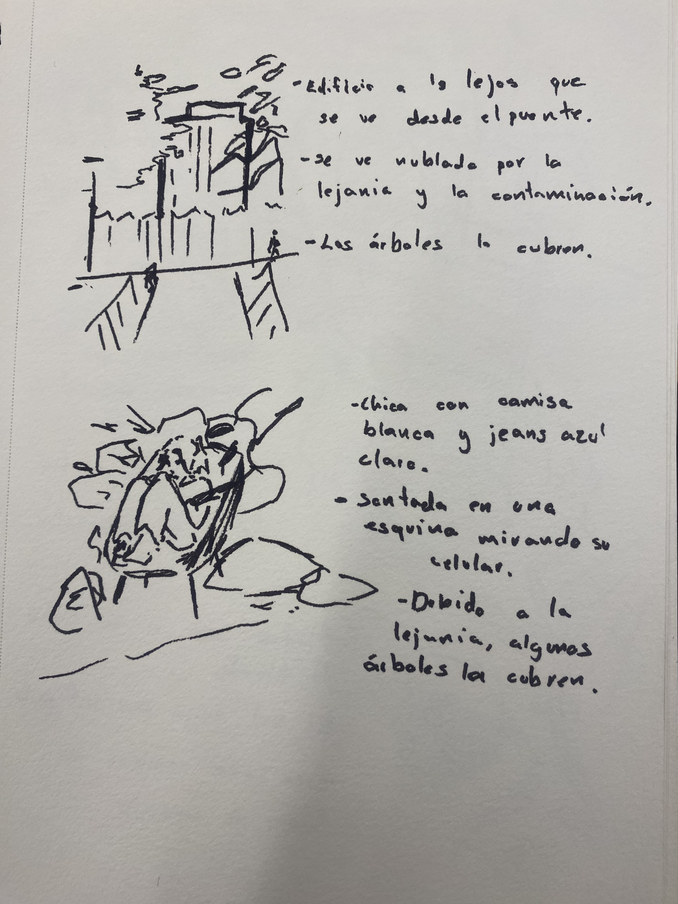 - Edificio a lo lejos que
se ve desde el puente.
- se ve nublado por la
lejania y la contaminación.
- Los árboles lo cubren.
- Chica con camisa
blanca y jeans azul
claro.
- sentada en una
esquina mirando su
celular.
- Debido a la
lejania, algunos
árboles la cubren.